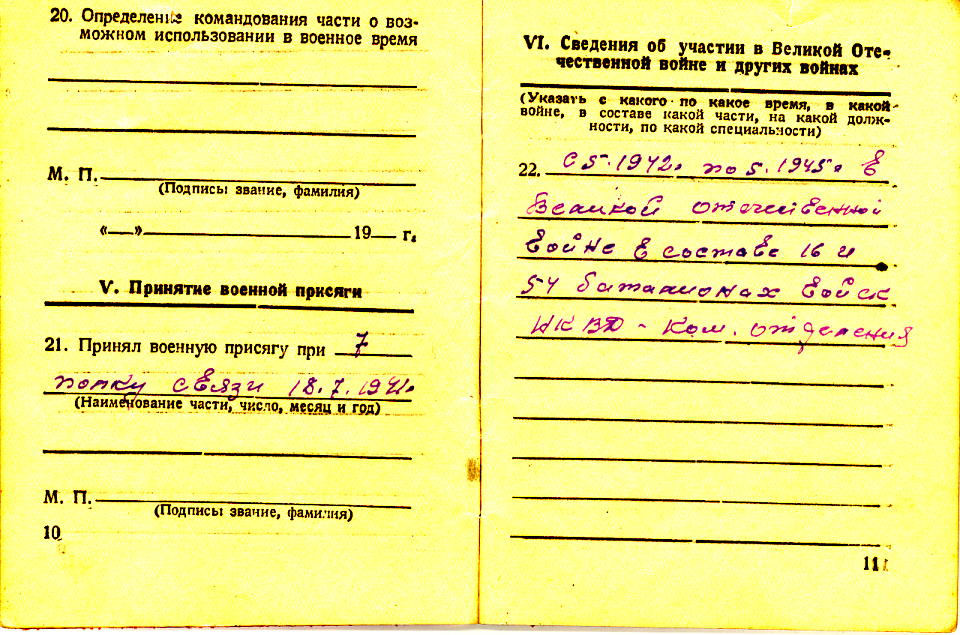 20. Определение командования части о воз-
можном использовании в военное время
М. П.
(Подписы звание, фамилия)
«—» 19— г.
V. Принятие военной присяги
21. Принял военную присягу при 7
полку связи 18.7.1941.
(Наименование части, число, месяц и год)
М. П.
(Подписы звание, фамилия)
10
VI. Сведения об участии в Великой Оте-
чественной войне и других войнах
(Указать с какого по какое время, в какой
войне, в составе какой части, на какой долж-
ности, по какой специальности)
22. С 5.1942. по 5.1945. в
Великой отечественной
войне в составе 16 и
54 батальонах войск
НКВД - Ком. отделения
11